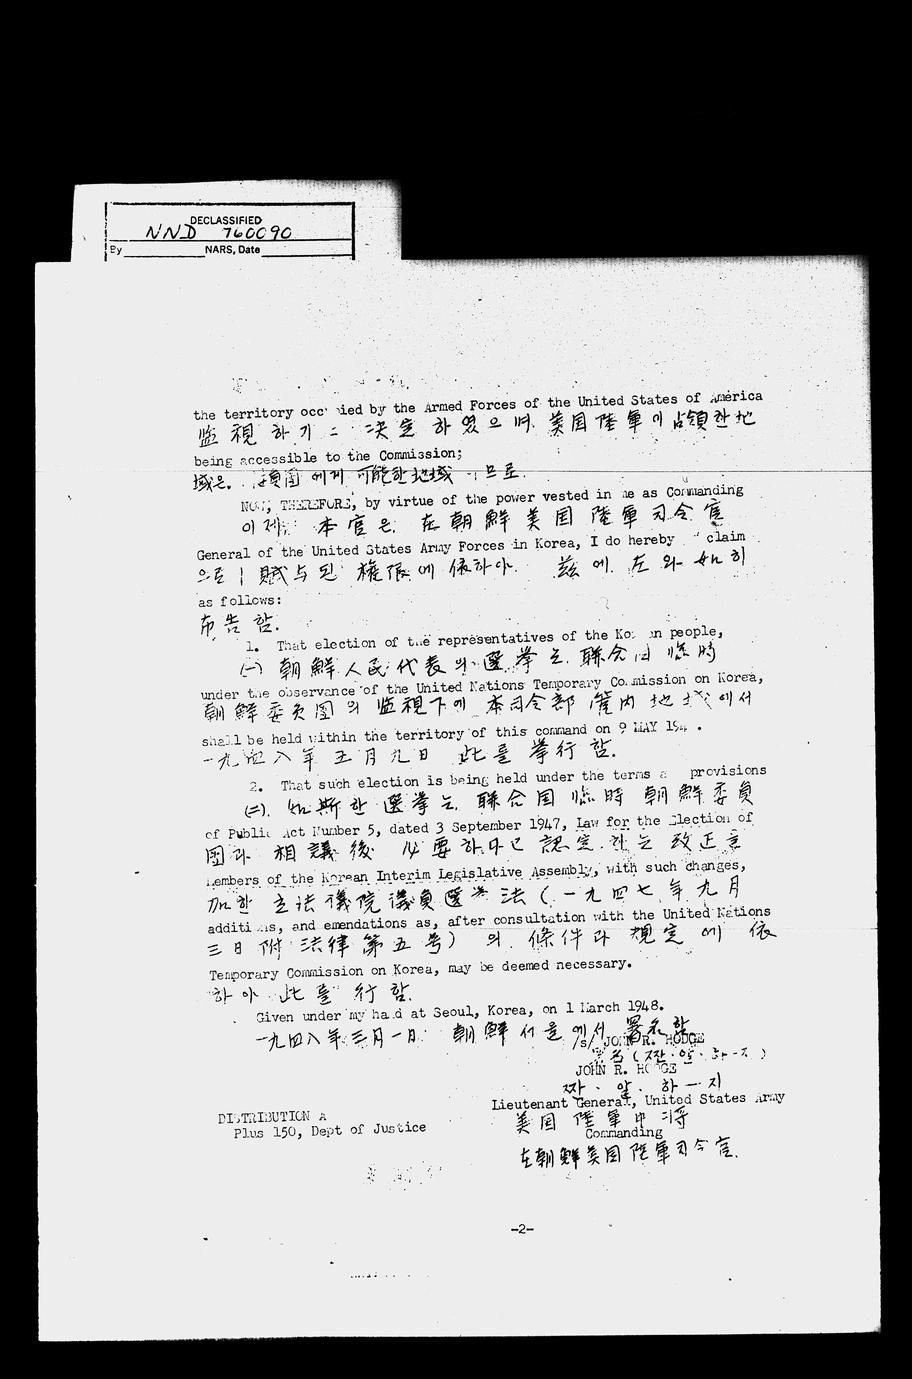 DECLASSIFIED
NND 760090
By NARS, Date
the territory by the Armed Forces of the United States of America
監視하기 決定하였으며 美国陸軍이占領한地
being accessible to the Commission;
域은 委員團에게 可能한地域으로
NOW, THEREFORE, by virtue of the power vested in me as Commanding
이제: 本官은 在朝鮮美国陸軍司令官
General of the United States Army Forces in Korea, I do hereby claim
으로 賦与된 權限에 依하야 茲에 左와如히
as follows:
布告함.
1. That election of the representatives of the people,
(一) 朝鮮人民代表의 選挙는 聯合国臨時
under the observance of the United Nations Temporary Commission on Korea,
朝鮮委員團의 监視下에 本司令部管内地域에서
shall be held within the territory of this command on 9 MAY .
一九四八年五月九日 此를 挙行함.
2. That such election is being held under the terms provisions
(二). 如斯한 選挙는 聯合国臨時朝鮮委員
of Public Act Number 5, dated 3 September 1947, Law for the Election of
團과 相議後 必要하다고 認定하는 改正을
Members of the Korean Interim Legislative Assembly, with such changes,
加한 立法議院議員選挙法(一九四七年九月
additions, and emendations as, after consultation with the United Nations
三日附法律第五号)의 條件과 規定에 依
Temporary Commission on Korea, may be deemed necessary.
하야 此를 行함.
Given under my hand at Seoul, Korea, on 1 March 1948.
一九四八年三月一日 朝鮮서울에서 署名함
/s/ JOHN R. HODGE
署名(짠·알·하-지)
JOHN R. HODGE
짠·알·하-지
Lieutenant General, United States Army
美国陸軍中將
Commanding
在朝鮮美国陸軍司令官.
DISTRIBUTION A
Plus 150, Dept of Justice
-2-